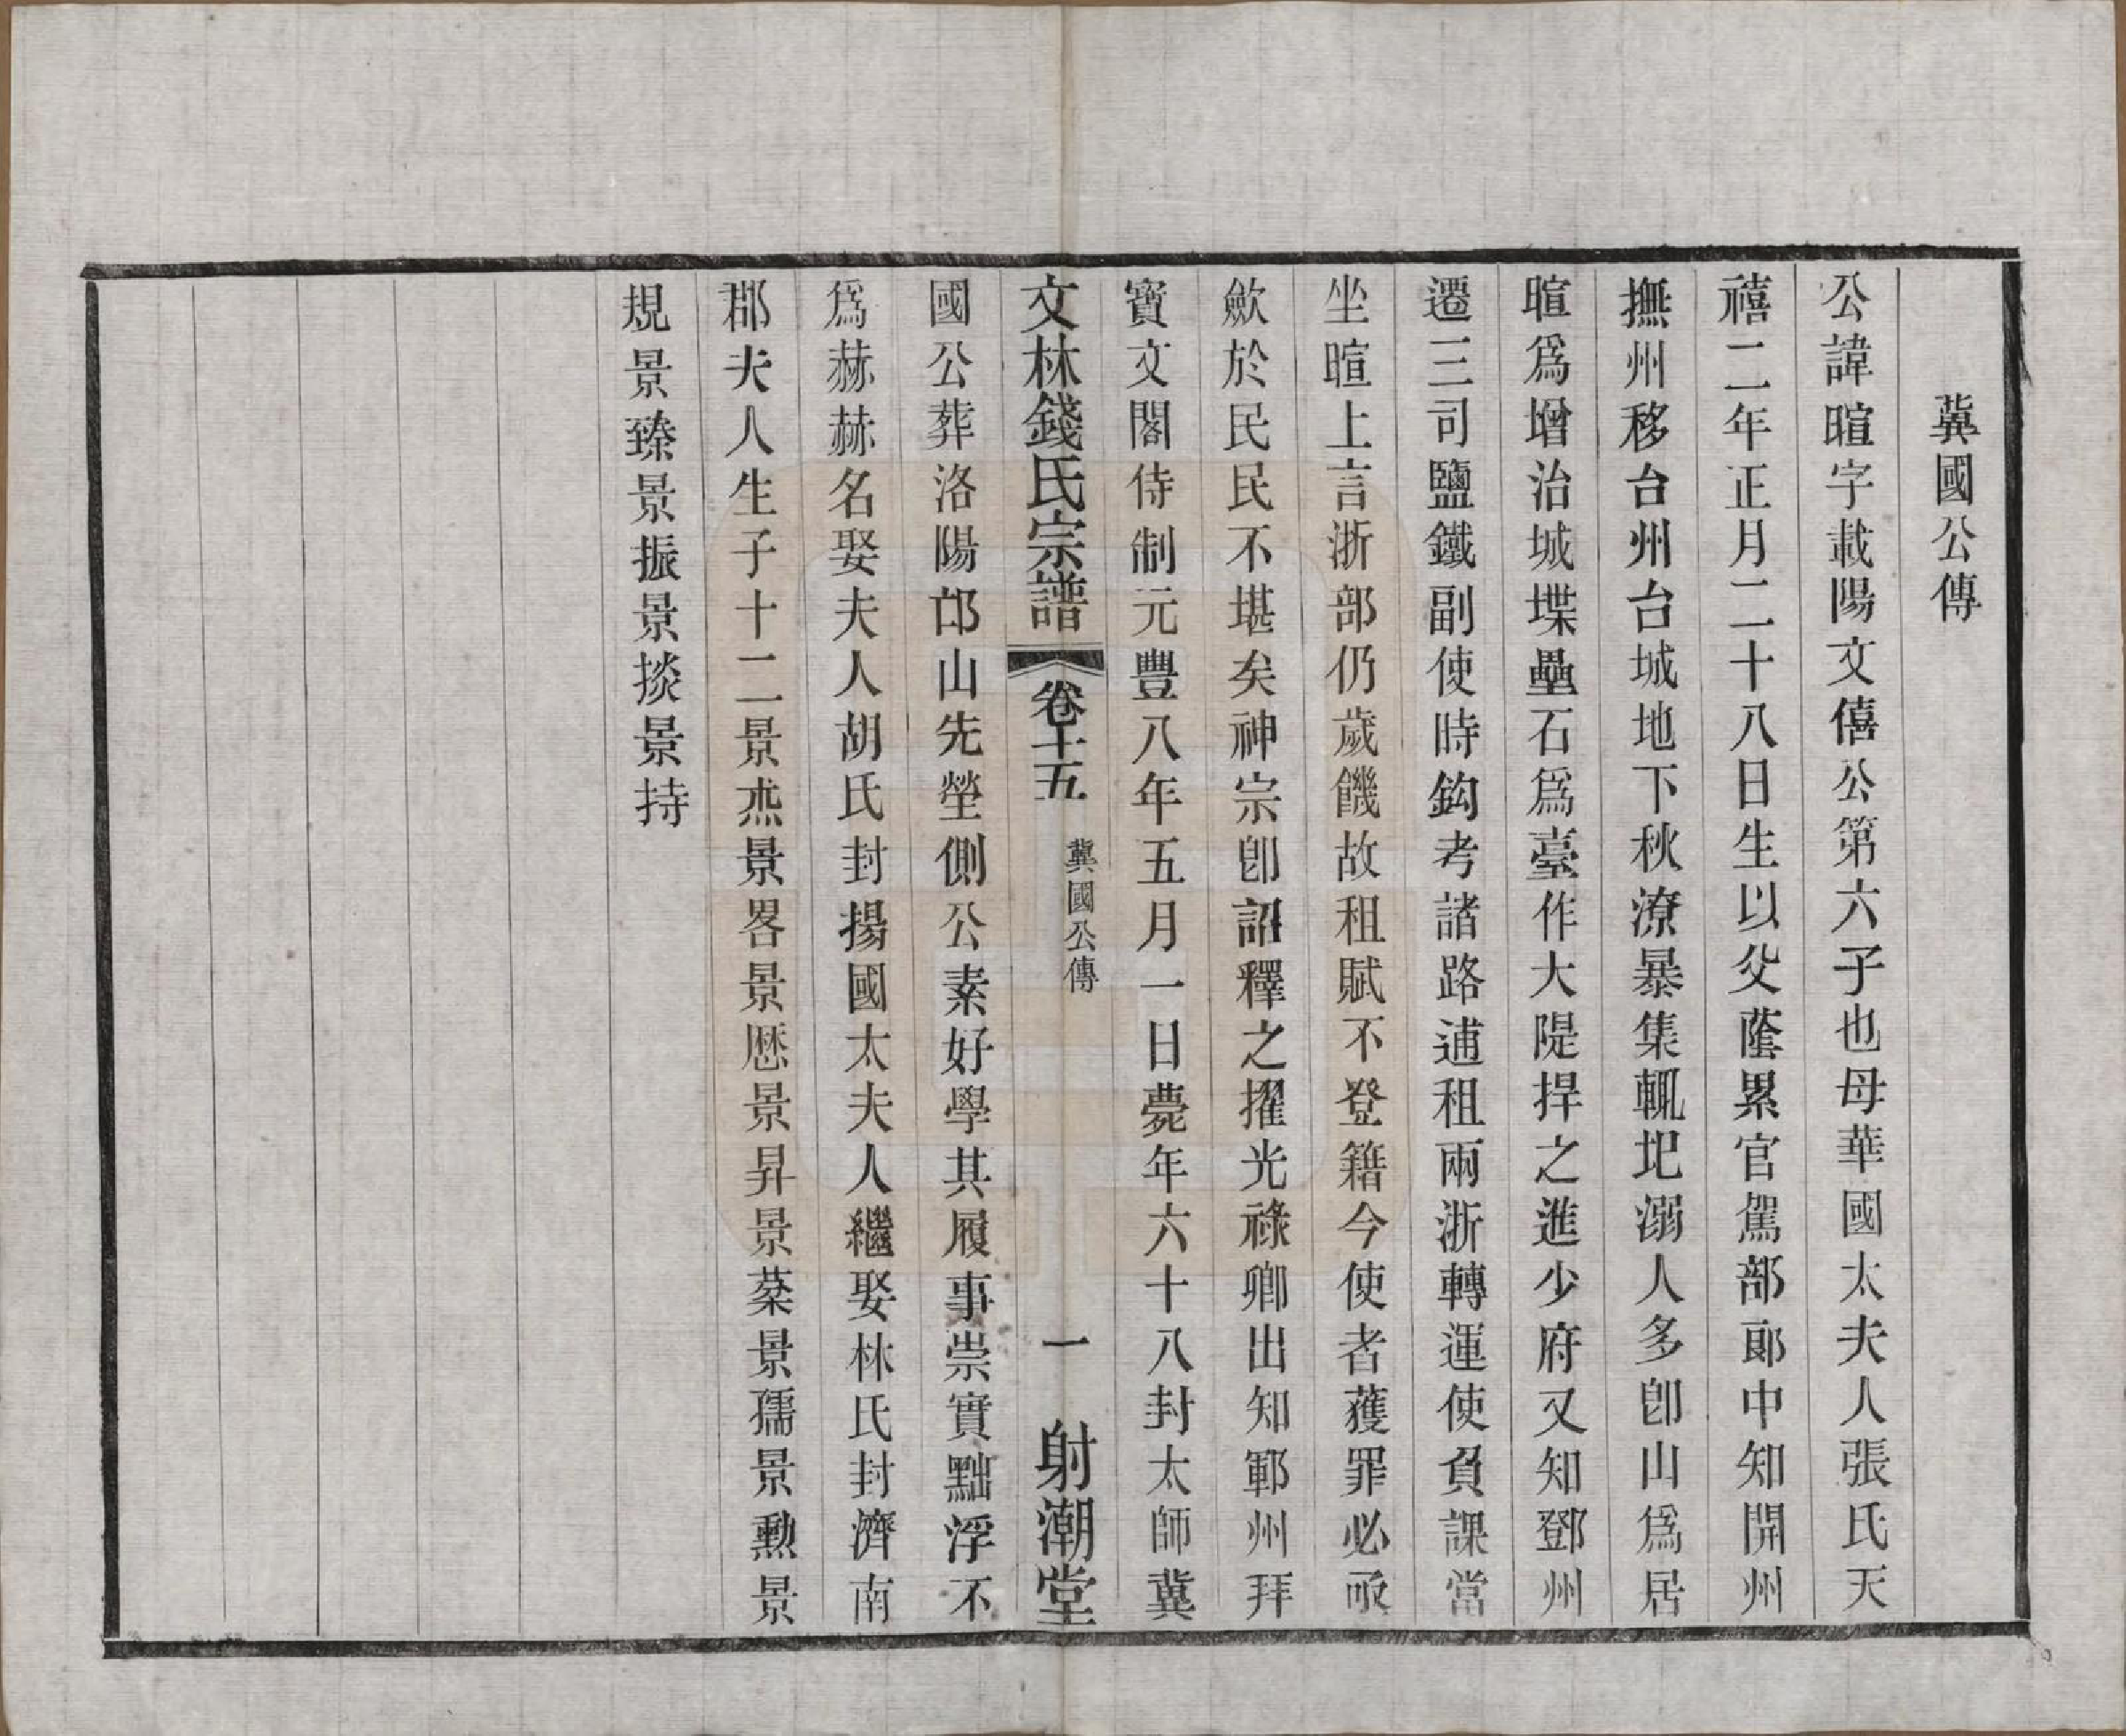 冀國公傳
公諱暄字載陽文僖公第六子也母華國太夫人張氏天
禧二年正月二十八日生以父蔭累官駕部郎中知開州
撫州移台州台城地下秋潦暴集輒圯溺人多卽山爲居
暄爲增治城堞壘石爲臺作大隄捍之進少府又知鄧州
遷三司鹽鐵副使時鈎考諸路逋租兩浙轉運使負課當
坐暄上言浙部仍歲饑故租賦不登籍今使者獲罪必亟
歛於民民不堪矣神宗卽詔釋之擢光祿卿出知鄆州拜
寶文閣侍制元豐八年五月一日薨年六十八封太師冀
文林錢氏宗譜 卷十五 冀國公傳 一 射潮堂
國公葬洛陽邙山先塋側公素好學其履事崇實黜浮不
爲赫赫名娶夫人胡氏封揚國太夫人繼娶林氏封濟南
郡夫人生子十二景𤇆景畧景歷景昇景蓁景孺景勲景
規景臻景振景掞景持